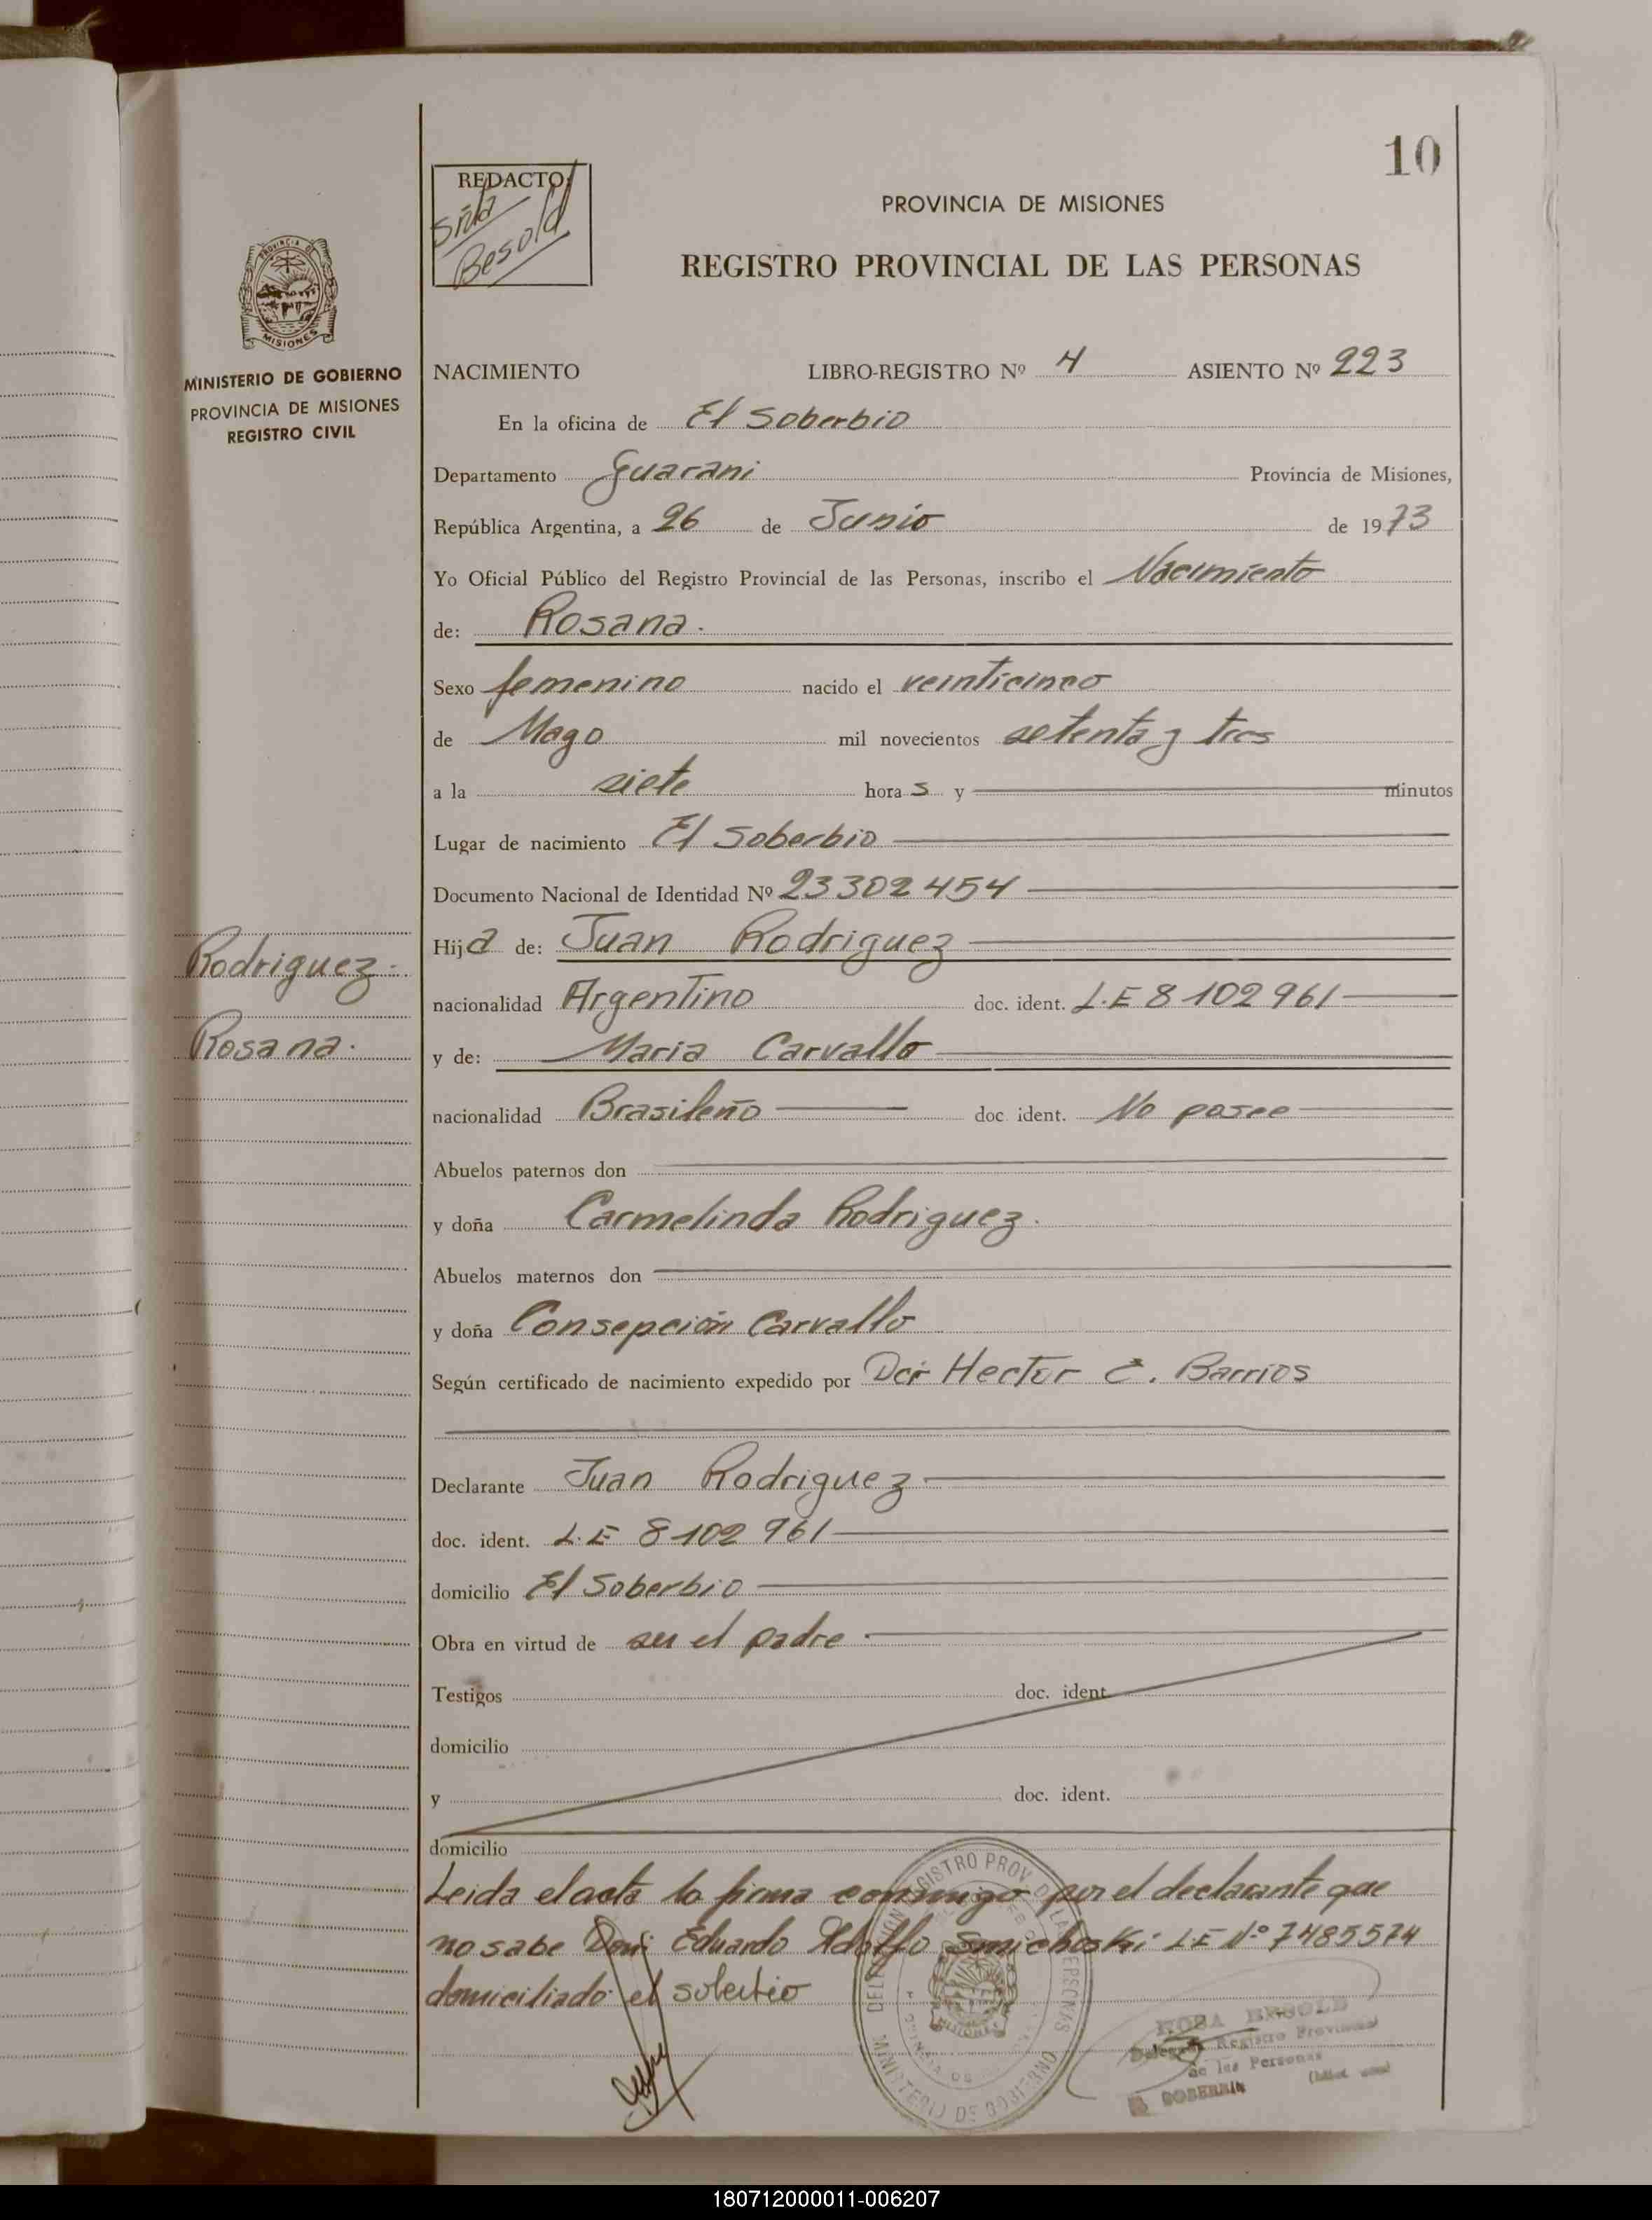 10
REDACTO:
Srta
Besold
PROVINCIA DE MISIONES
REGISTRO PROVINCIAL DE LAS PERSONAS
PROVINCIA DE
MISIONES
MINISTERIO DE GOBIERNO
PROVINCIA DE MISIONES
REGISTRO CIVIL
NACIMIENTO LIBRO-REGISTRO Nº 4 ASIENTO Nº 223
En la oficina de El Soberbio
Departamento Guarani Provincia de Misiones,
República Argentina, a 26 de Junio de 1973
Yo Oficial Público del Registro Provincial de las Personas, inscribo el Nacimiento
de: Rosana.
Sexo femenino nacido el veinticinco
de Mayo mil novecientos setenta y tres
a la siete hora s y minutos
Lugar de nacimiento El Soberbio
Documento Nacional de Identidad Nº 23302454
Hija de: Juan Rodriguez
Rodriguez.
nacionalidad Argentino doc. ident. L.E 8102961
Rosana.
y de: Maria Carvallo
nacionalidad Brasileño doc. ident. No posee
Abuelos paternos don
y doña Carmelinda Rodriguez.
Abuelos maternos don
y doña Consepción Carvallo
Según certificado de nacimiento expedido por Hector C. Barrios
Declarante Juan Rodriguez
doc. ident. L.E 8102961
domicilio El Soberbio
Obra en virtud de ser el padre
Testigos doc. ident.
domicilio
y doc. ident.
domicilio
Leida el acta la firma conmigo por el declarante que
no sabe Don: Eduardo Adolfo Smichoski LE Nº 7485574
domiciliado: el soberbio
REGISTRO PROV. DE LAS PERSONAS
MINISTERIO DE GOBIERNO
MISIONES
ROSA BESOLD
Delegada Registro Provincial
de las Personas
SOBERBIO
180712000011-006207